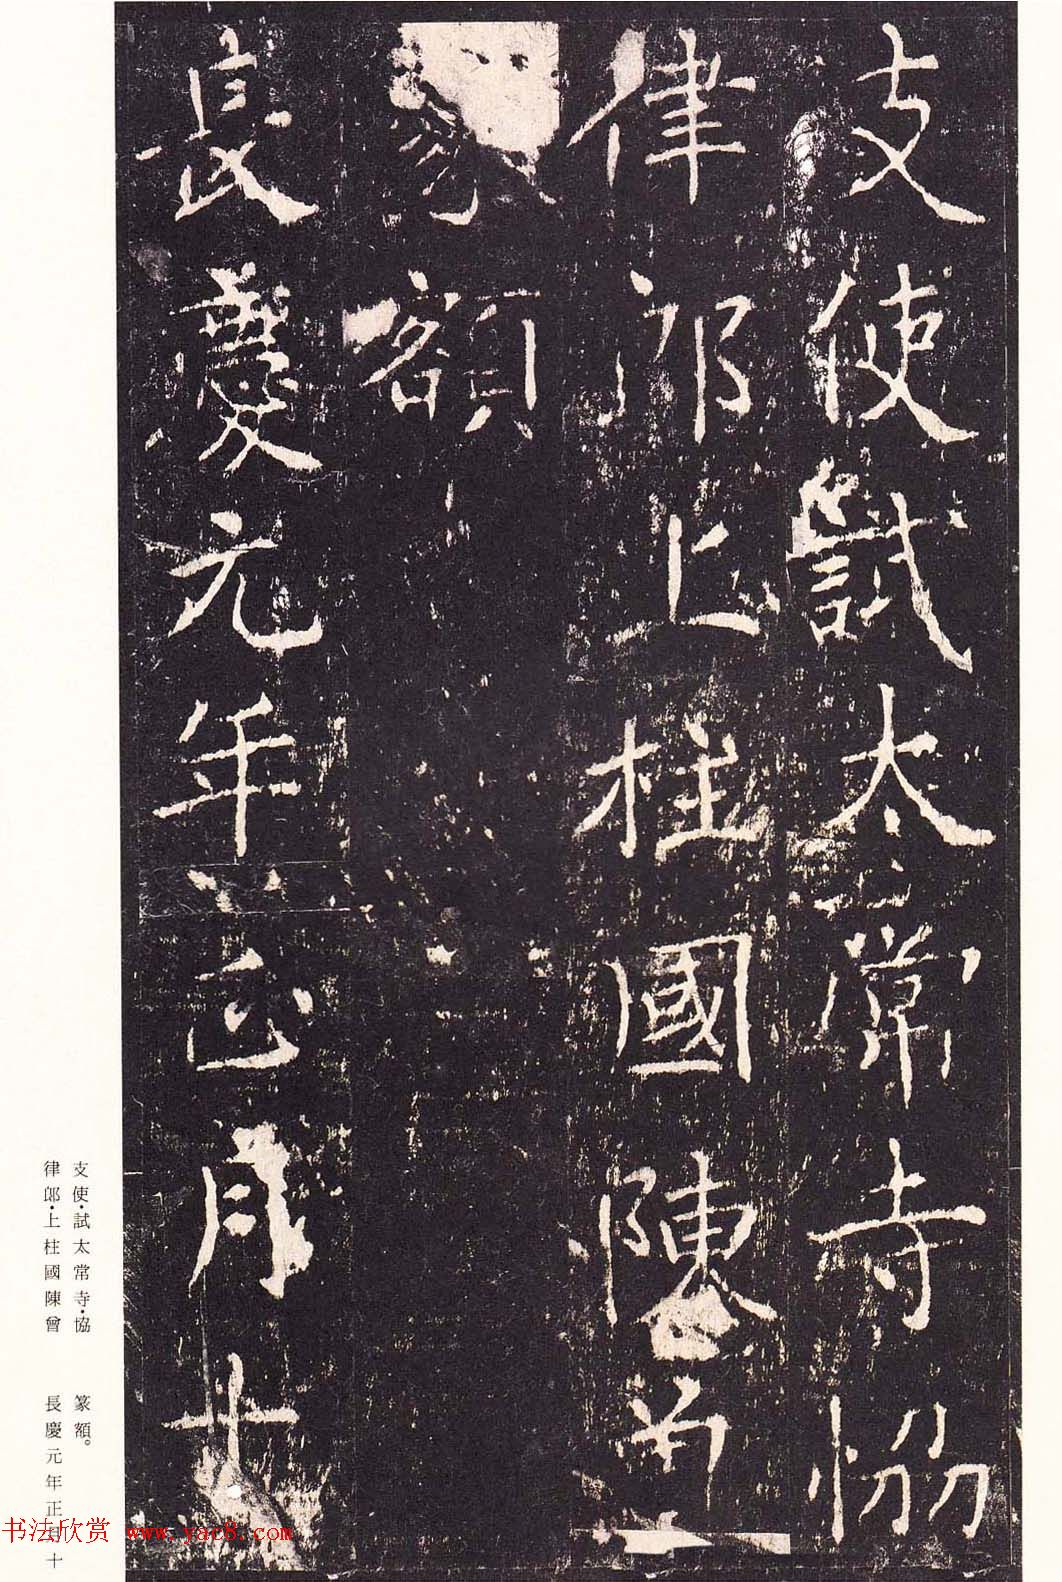 支使試太常寺協
律郎上柱國陳曾
篆額
長慶元年正月十
支使·試太常寺·協
律郎·上柱國陳曾
篆額。
長慶元年正月十
书法欣赏 www.yac8.com